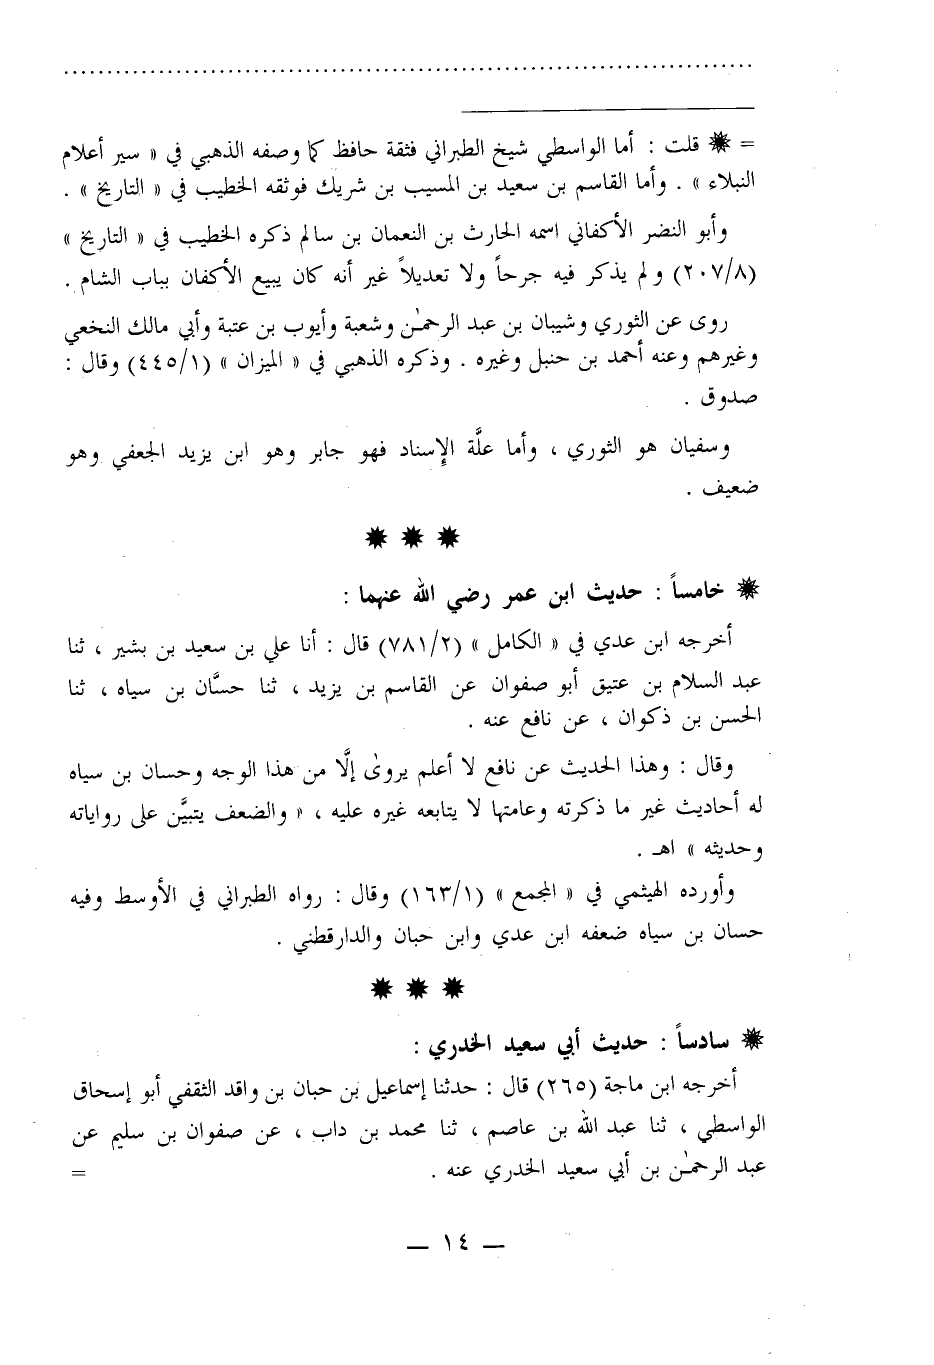 = ✹ قلت : أما الواسطي شيخ الطبراني فثقة حافظ كما وصفه الذهبي في « سير أعلام
النبلاء » . وأما القاسم بن سعيد بن المسيب بن شريك فوثقه الخطيب في « التاريخ » .
وأبو النضر الأكفاني اسمه الحارث بن النعمان بن سالم ذكره الخطيب في « التاريخ »
(٢٠٧/٨) ولم يذكر فيه جرحاً ولا تعديلاً غير أنه كان يبيع الأكفان بباب الشام .
روى عن الثوري وشيبان بن عبد الرحمـٰن وشعبة وأيوب بن عتبة وأبي مالك النخعي
وغيرهم وعنه أحمد بن حنبل وغيره . وذكره الذهبي في « الميزان » (٤٤٥/١) وقال :
صدوق .
وسفيان هو الثوري ، وأما علَّة الإسناد فهو جابر وهو ابن يزيد الجعفي وهو
ضعيف .
✹ ✹ ✹
✹ خامساً : حديث ابن عمر رضي الله عنهما :
أخرجه ابن عدي في « الكامل » (٧٨١/٢) قال : أنا علي بن سعيد بن بشير ، ثنا
عبد السلام بن عتيق أبو صفوان عن القاسم بن يزيد ، ثنا حسَّان بن سياه ، ثنا
الحسن بن ذكوان ، عن نافع عنه .
وقال : وهذا الحديث عن نافع لا أعلم يروىٰ إلَّا من هذا الوجه وحسان بن سياه
له أحاديث غير ما ذكرته وعامتها لا يتابعه غيره عليه ، « والضعف يتبيَّن على رواياته
وحديثه » اهـ .
وأورده الهيثمي في « المجمع » (١٦٣/١) وقال : رواه الطبراني في الأوسط وفيه
حسان بن سياه ضعفه ابن عدي وابن حبان والدارقطني .
✹ ✹ ✹
✹ سادساً : حديث أبي سعيد الخدري :
أخرجه ابن ماجة (٢٦٥) قال : حدثنا إسماعيل بن حبان بن واقد الثقفي أبو إسحاق
الواسطي ، ثنا عبد الله بن عاصم ، ثنا محمد بن داب ، عن صفوان بن سليم عن
عبد الرحمـٰن بن أبي سعيد الخدري عنه . =
— ١٤ —